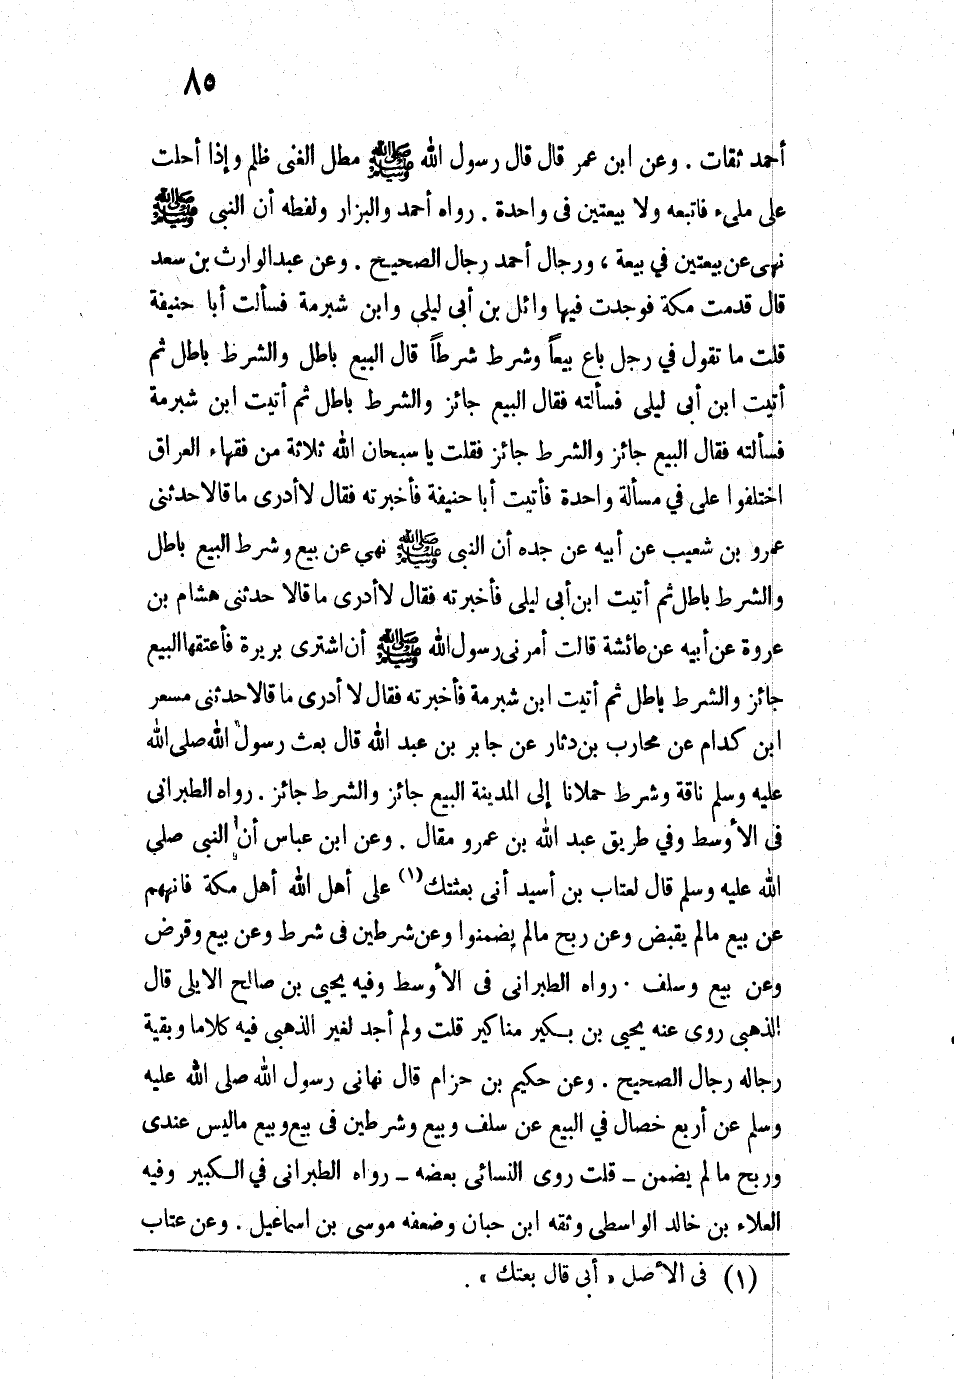 ٨٥
أحمد ثقات . وعن ابن عمر قال قال رسول الله ﷺ مطل الغنى ظلم وإذا أحلت
على مليء فاتبعه ولا بيعتين فى واحدة . رواه أحمد والبزار ولفظه أن النبى ﷺ
نهى عن بيعتين في بيعة ، ورجال أحمد رجال الصحيح . وعن عبدالوارث بن سعد
قال قدمت مكة فوجدت فيها وائل بن أبى ليلى وابن شبرمة فسألت أبا حنيفة
قلت ما تقول في رجل باع بيعاً وشرط شرطاً قال البيع باطل والشرط باطل ثم
أتيت ابن أبى ليلى فسألته فقال البيع جائز والشرط باطل ثم أتيت ابن شبرمة
فسألته فقال البيع جائز والشرط جائز فقلت يا سبحان الله ثلاثة من فقهاء العراق
اختلفوا على في مسألة واحدة فأتيت أبا حنيفة فأخبرته فقال لاأدرى ماقالاحدثنى
عمرو بن شعيب عن أبيه عن جده أن النبى ﷺ نهي عن بيع وشرط البيع باطل
والشرط باطل ثم أتيت ابن أبى ليلى فأخبرته فقال لاأدرى ماقالا حدثنى هشام بن
عروة عن أبيه عن عائشة قالت أمرنى رسول الله ﷺ أن اشترى بريرة فأعتقها البيع
جائز والشرط باطل ثم أتيت ابن شبرمة فأخبرته فقال لا أدرى ماقالاحدثنى مسعر
ابن كدام عن محارب بن دثار عن جابر بن عبد الله قال بعث رسول الله صلى الله
عليه وسلم ناقة وشرط حملانا إلى المدينة البيع جائز والشرط جائز . رواه الطبرانى
فى الأوسط وفي طريق عبد الله بن عمرو مقال . وعن ابن عباس أن النبى صلي
الله عليه وسلم قال لعتاب بن أسيد أنى بعثتك (١) على أهل الله أهل مكة فانههم
عن بيع مالم يقبض وعن ربح مالم يضمنوا وعن شرطين فى شرط وعن بيع وقرض
وعن بيع وسلف . رواه الطبرانى فى الأوسط وفيه يحيى بن صالح الايلى قال
الذهبى روى عنه يحيى بن بكير مناكير قلت ولم أجد لغير الذهبى فيه كلاما وبقية
رجاله رجال الصحيح . وعن حكيم بن حزام قال نهانى رسول الله صلى الله عليه
وسلم عن أربع خصال في البيع عن سلف وبيع وشرطين فى بيع وبيع ماليس عندى
وربح مالم يضمن – قلت روى النسائى بعضه – رواه الطبرانى في الكبير وفيه
العلاء بن خالد الواسطى وثقه ابن حبان وضعفه موسى بن اسماعيل . وعن عتاب
(١) فى الأصل « أبى قال بعتك » .